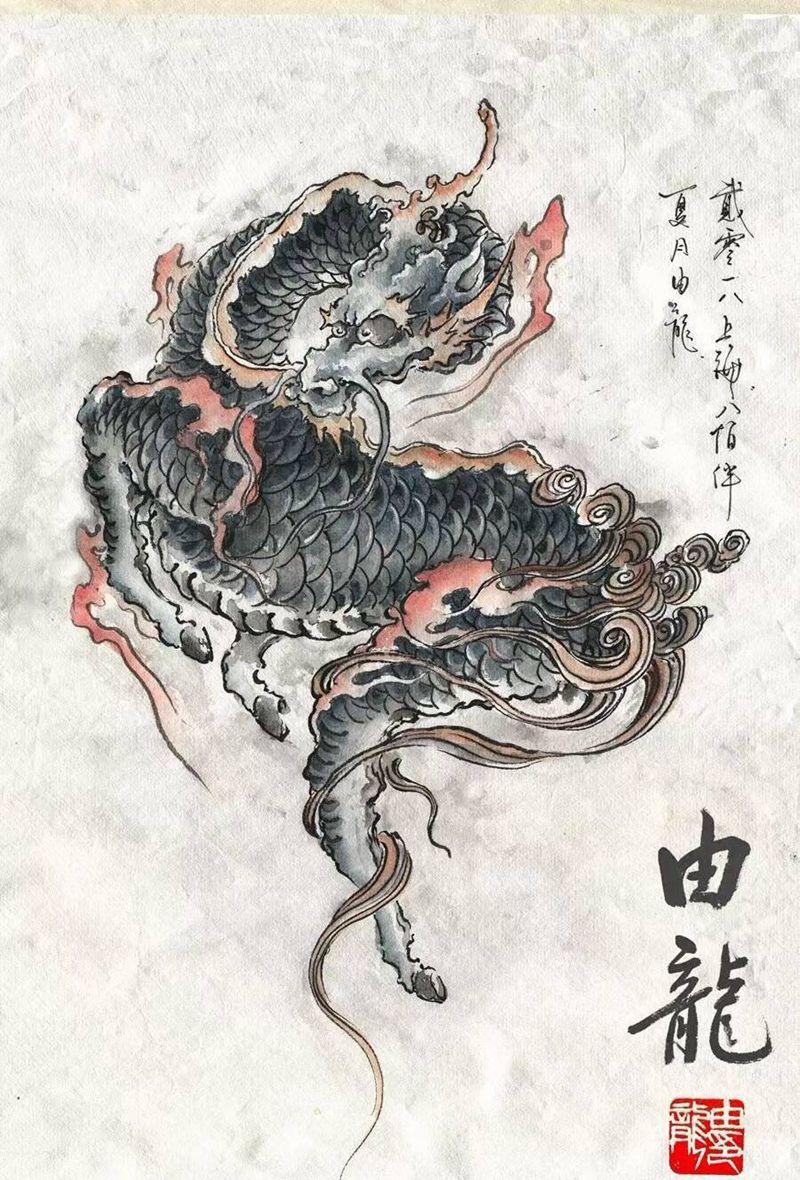 贰零一八上海八佰伴
夏月由龍
由龍
由龍印